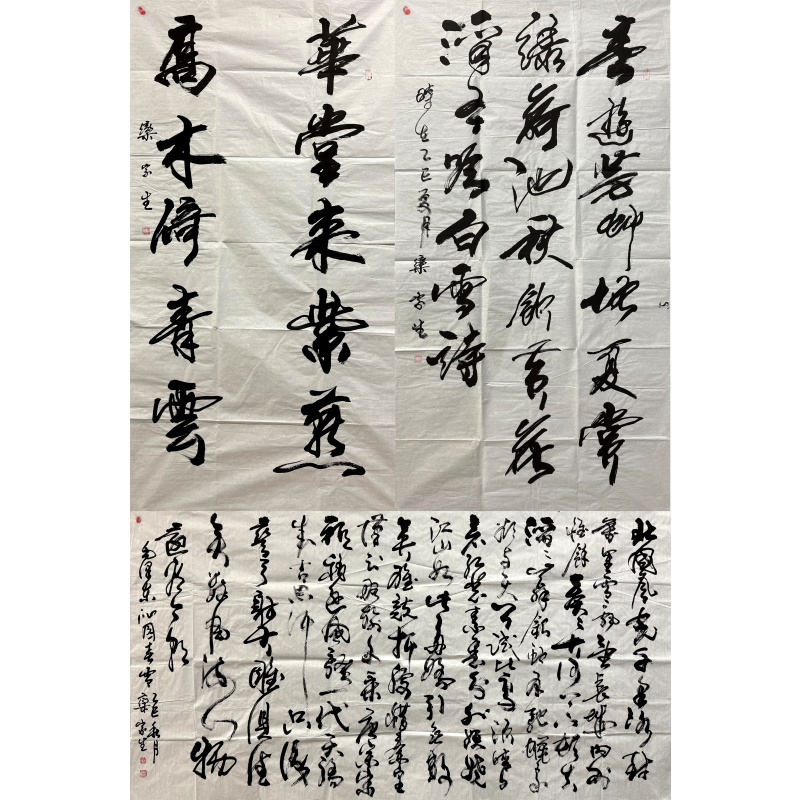 華堂來紫燕
高木倚青雲
欒家生
春遊芳草地夏賞
綠荷池秋飲黃花
酒冬吟白雪詩
時在乙巳夏月欒家生
北國風光千里冰封
萬里雪飄望長城內外
惟餘莽莽大河上下頓失
滔滔山舞銀蛇原馳蠟象
欲與天公試比高須晴日
看紅裝素裹分外妖嬈
江山如此多嬌引無數
英雄競折腰惜秦皇
漢武略輸文采唐宗宋
祖稍遜風騷一代天驕
成吉思汗只識
彎弓射大雕俱往
矣數風流人物
還看今朝
毛澤東沁園春雪乙巳秋月欒家生